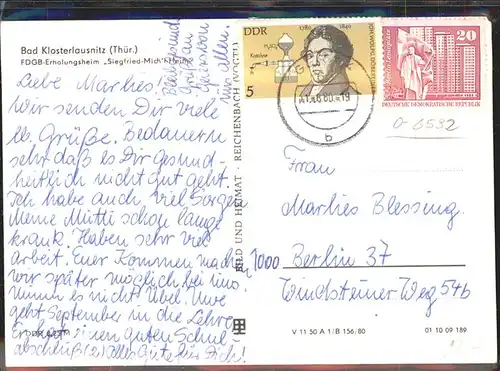 Bad Klosterlausnitz (Thür.)
FDGB-Erholungsheim „Siegfried-Mich'l-Heim"
Liebe Marlies!
Wir senden Dir viele
lb. Grüße. Bedauern
sehr daß es Dir gesund-
heitlich nicht gut geht.
Ich habe auch viel Sorgen
Meine Mutti schon lange
krank. Haben sehr viel
arbeit. Euer Kommen
wir später möglich bei uns
es nicht übel. Uwe
geht September in die Lehre
guten Schul-
abschluß (2) alles Gute für Dich!
Gruß an
von
allen
BILD UND HEIMAT · REICHENBACH (VOGTL)
DDR
1780 1849
JOH. WOLFG. DÖBEREINER
5
20
DEUTSCHE DEMOKRATISCHE REPUBLIK
80
19
b
0-6532
Frau
Marlies Blessing
1000 Berlin 37
Weg 54b
V 11 50 A 1/B 156/80
01 10 09 189